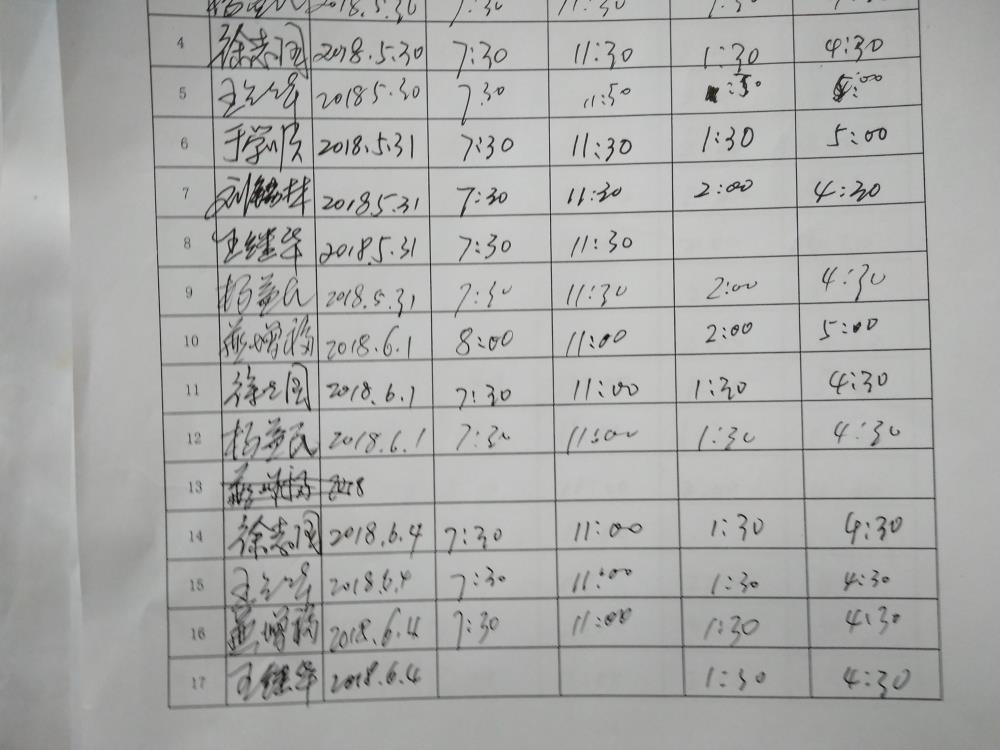 2018.5.30 7:30 11:30 1:30
4 徐志国 2018.5.30 7:30 11:30 1:30 4:30
5 2018.5.30 7:30 11:50 :30 5:00
6 于学 2018.5.31 7:30 11:30 1:30 5:00
7 刘 林 2018.5.31 7:30 11:30 2:00 4:30
8 王继华 2018.5.31 7:30 11:30
9 杨益民 2018.5.31 7:30 11:30 2:00 4:30
10 2018.6.1 8:00 11:00 2:00 5:00
11 徐志国 2018.6.1 7:30 11:00 1:30 4:30
12 杨益民 2018.6.1 7:30 11:00 1:30 4:30
13 2018
14 徐志国 2018.6.4 7:30 11:00 1:30 4:30
15 2018.6.4 7:30 11:00 1:30 4:30
16 2018.6.4 7:30 11:00 1:30 4:30
17 王继华 2018.6.4 1:30 4:30